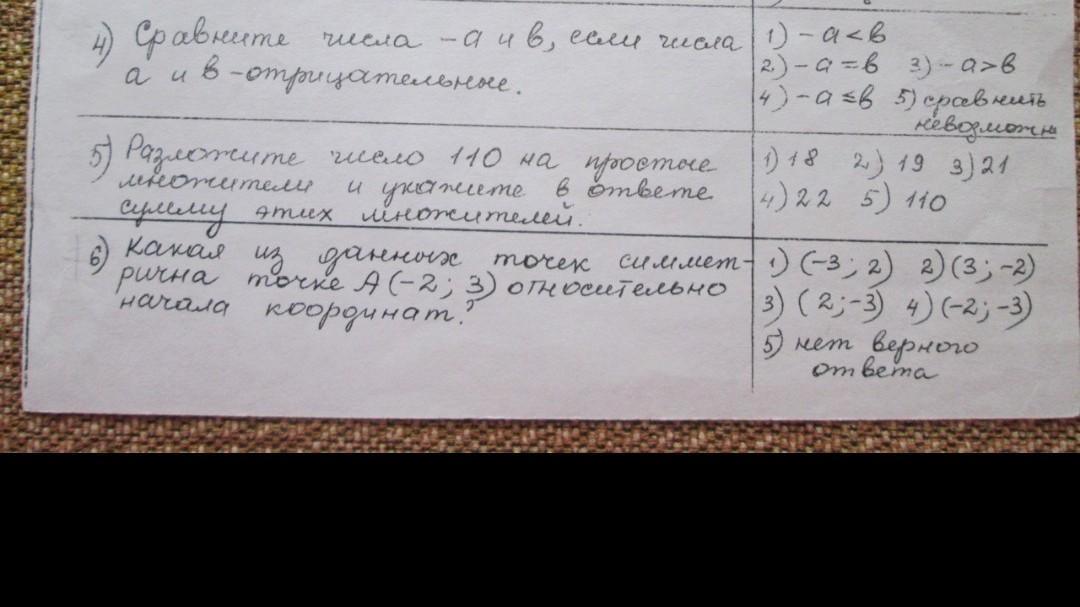 4) Сравните числа -а и в, если числа
а и в - отрицательные.
1) - а < в
2) - а = в 3) - а > в
4) - а ≤ в 5) сравнить
невозможно
5) Разложите число 110 на простые
множители и укажите в ответе
сумму этих множителей.
1) 18 2) 19 3) 21
4) 22 5) 110
6) Какая из данных точек симмет-
рична точке А (-2; 3) относительно
начала координат?
1) (-3; 2) 2) (3; -2)
3) (2; -3) 4) (-2; -3)
5) нет верного
ответа